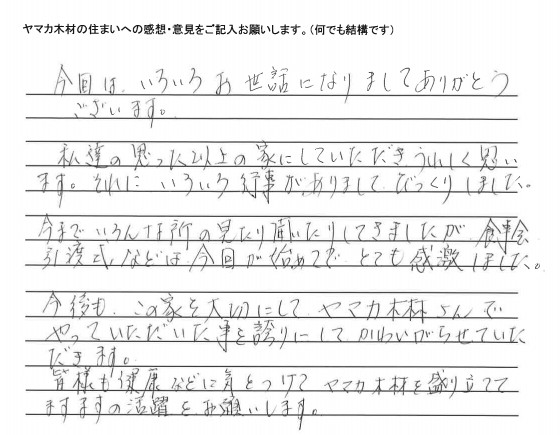 ヤマカ木材の住まいへの感想・意見をご記入お願いします。(何でも結構です)
今回は、いろいろお世話になりましてありがとう
ございます。
私達の思った以上の家にしていただき、うれしく思い
ます。それに いろいろ行事がありまして、びっくりしました。
今までいろんな所の見たり聞いたりしてきましたが、食事会
引渡式などは、今回が始めてで とても感激しました。
今後も、この家を大切にして、ヤマカ木材さんで
やっていただいた事を誇りにして かわいがらせていた
だきます。
皆様も健康などに気をつけて ヤマカ木材を盛り立てて
ますますの活躍を お願いします。